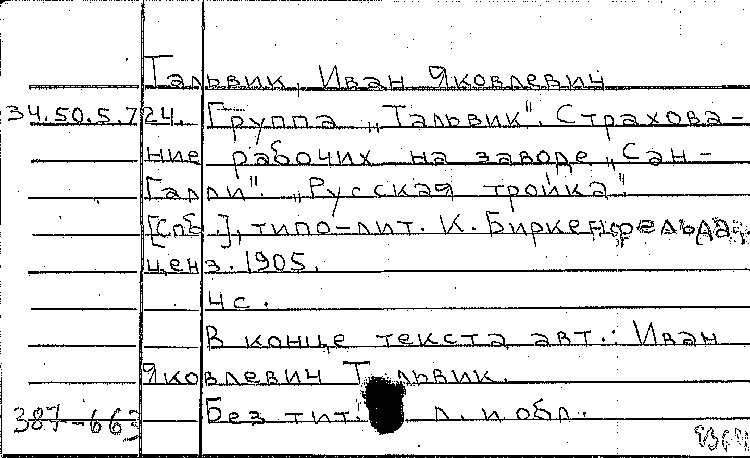 Тальвик, Иван Яковлевич
34.50.5.724. Группа „Тальвик". Страхова-
ние рабочих на заводе „Сан-
Галли". „Русская тройка"
[Спб.], типо-лит. К. Биркенфельда,
ценз. 1905.
4 с.
В конце текста авт.: Иван
Яковлевич Тальвик.
387-663 Без тит. л. и обл.